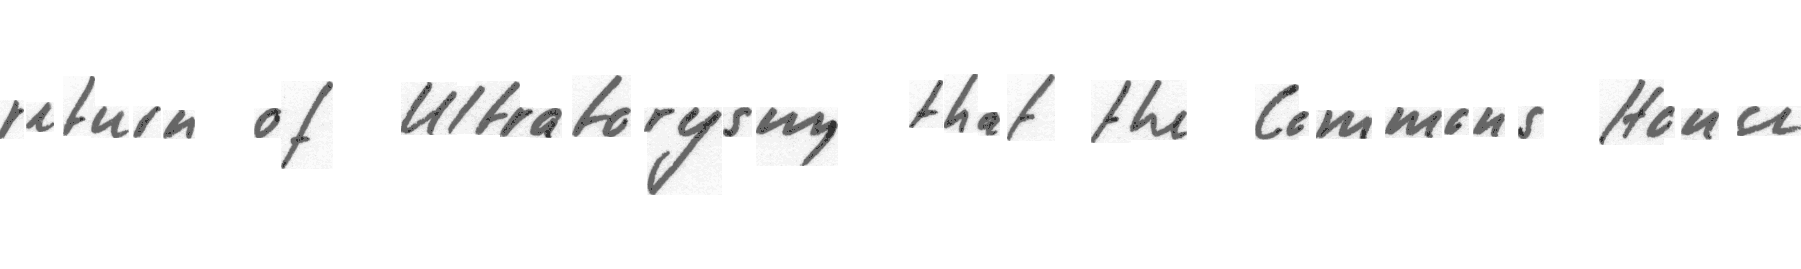 return of Ultratorysm, that the Commons House